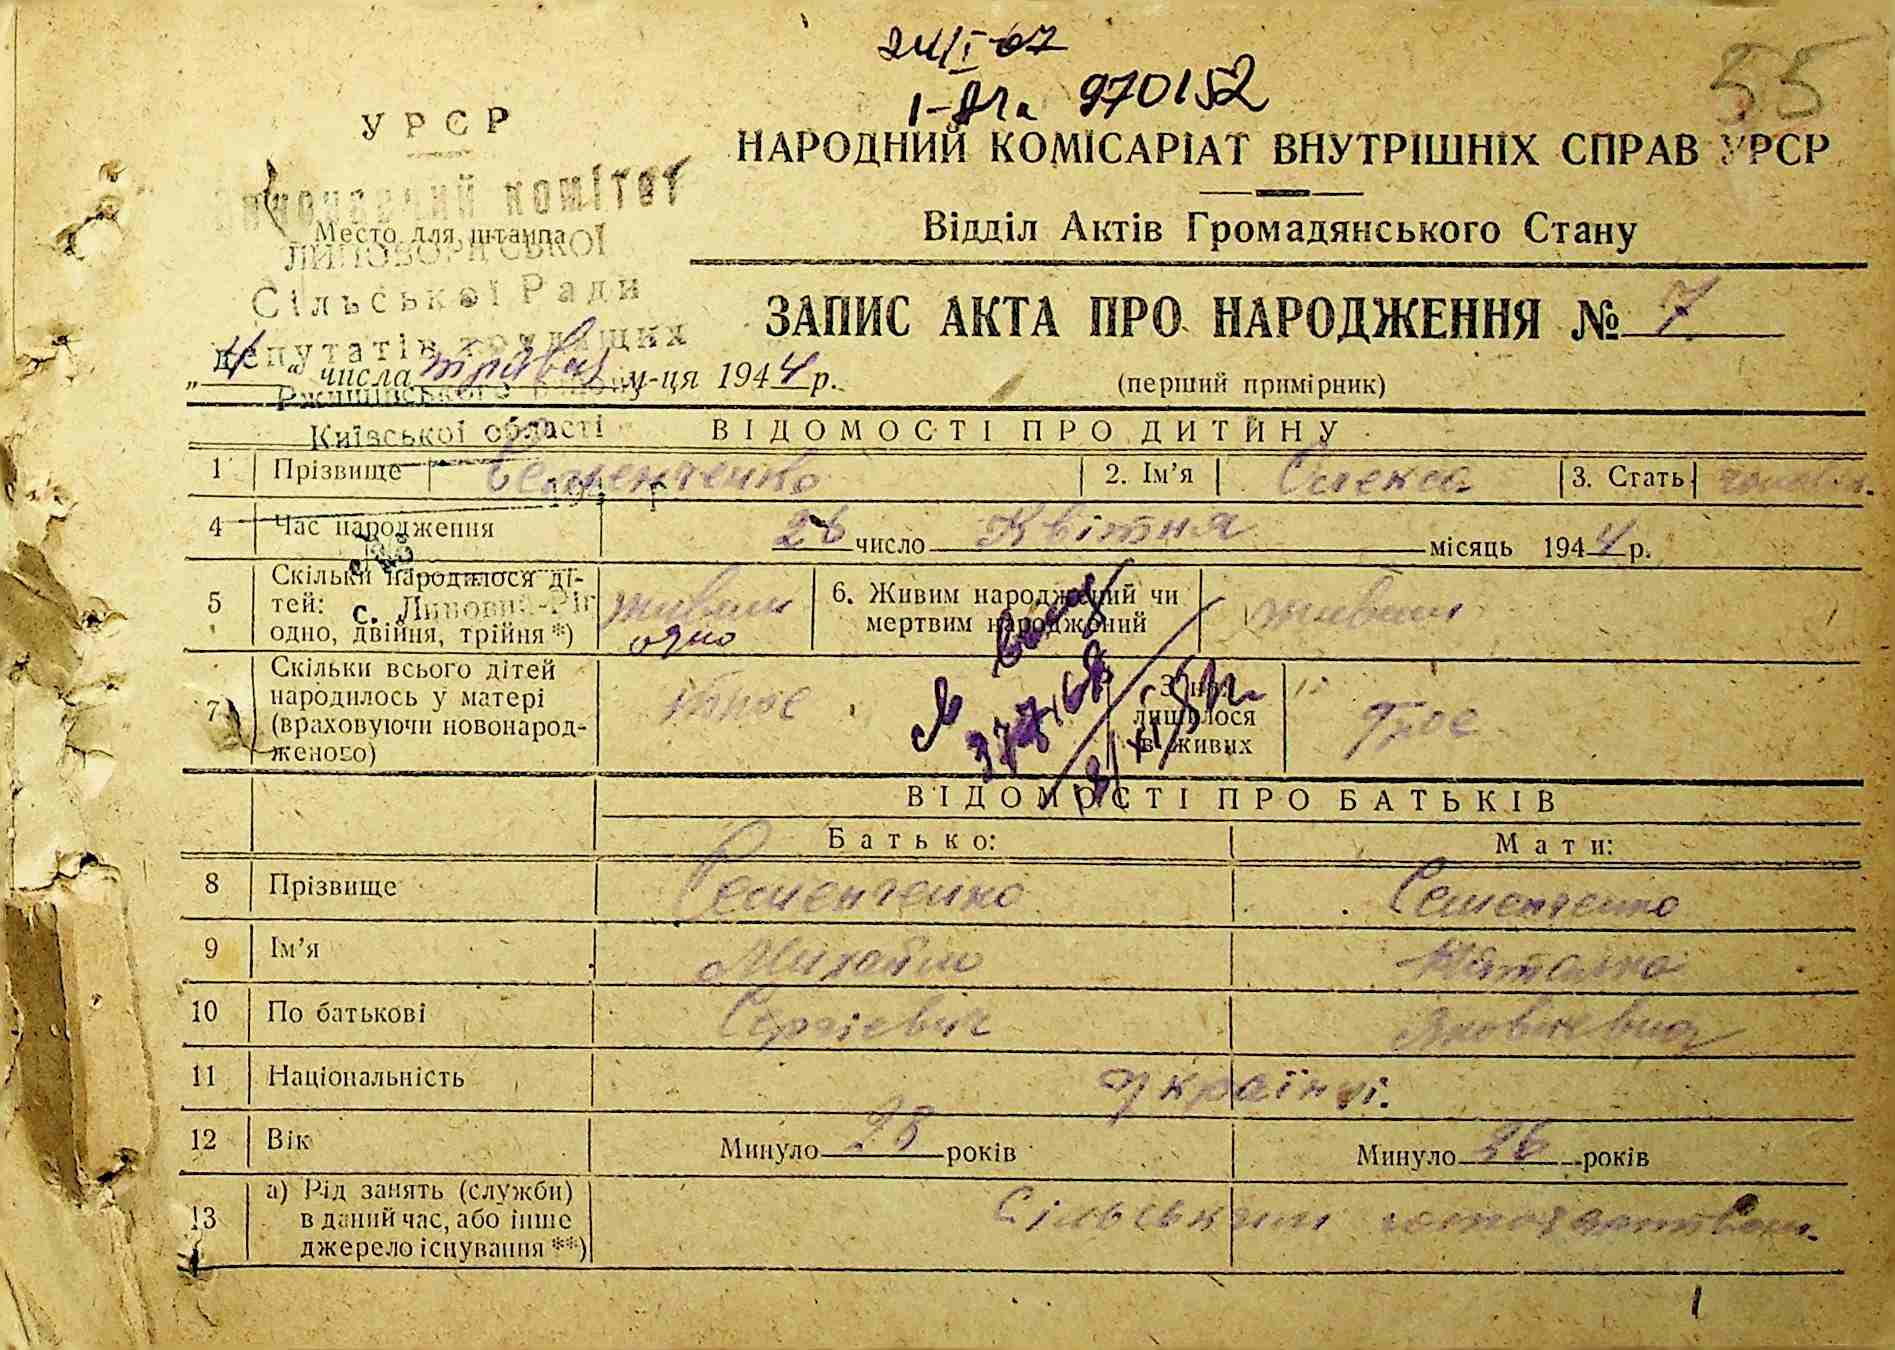 24/I-07
I-
970152
55
УРСР
Виконавчий комітет
Место для штампа
ЛИПОВОРІГСЬКОЇ
Сільської Ради
депутатів трудящих
Ржищівського району
Київської області
с. Липовий-Ріг
НАРОДНИЙ КОМІСАРІАТ ВНУТРІШНІХ СПРАВ УРСР
Відділ Актів Громадянського Стану
ЗАПИС АКТА ПРО НАРОДЖЕННЯ № 7
„4“ числа травня м-ця 1944 р.
(перший примірник)
ВІДОМОСТІ ПРО ДИТИНУ
1 Прізвище Семенченко 2. Ім’я Олекса 3. Стать
4 Час народження 26 число Квітня місяць 1944 р.
5 Скільки народилося ді-
тей:
одно, двійня, трійня *) живим
одно
6. Живим народжений чи
мертвим народжений живим
7 Скільки всього дітей
народилось у матері
(враховуючи новонарод-
женого) троє
З них
лишилося
в живих троє
ВІДОМОСТІ ПРО БАТЬКІВ
Батько: Мати:
8 Прізвище Семенченко Семенченко
9 Ім’я Михайло Наталка
10 По батькові Сергієвич Яковлевна
11 Національність українці.
12 Вік Минуло 28 років Минуло 26 років
13 а) Рід занять (служби)
в даний час, або інше
джерело існування **) Сільським господарством.
1